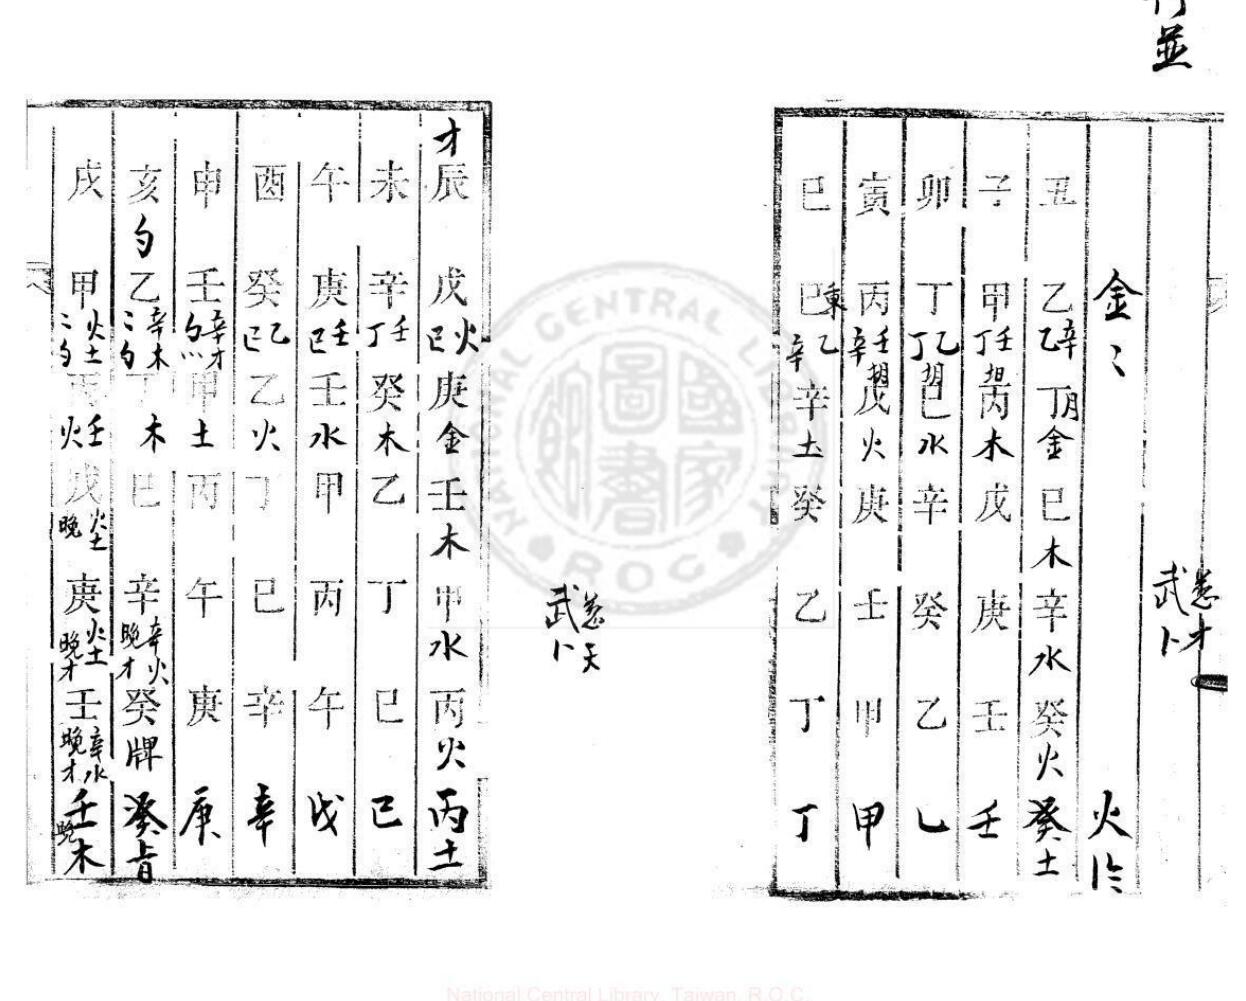 並
金
火
丑 乙 辛 乙 丁 月 金 巳 木 辛 水 癸 火 癸 土
子 甲 壬 丁 丙 木 戊 庚 壬 壬
卯 丁 乙 丁 巳 水 辛 癸 乙 乙
寅 丙 壬 辛 戊 火 庚 壬 甲 甲
巳 巳 乙 辛 辛 土 癸 乙 丁 丁
武
武
才 辰 戊 火 巳 庚 金 壬 木 甲 水 丙 火 丙 土
未 辛 壬 丁 癸 木 乙 丁 巳 己
午 庚 壬 巳 壬 水 甲 丙 午 戊
酉 癸 乙 巳 乙 火 丁 巳 辛 辛
申 壬 辛 才 甲 土 丙 午 庚 庚
亥 乙 辛 木 丁 木 巳 辛 辛 火 晚 才 癸 牌 癸
戌 甲 火 土 丙 壬 火 戊 火 土 晚 庚 火 土 晚 才 壬 辛 水 晚 才 壬 晚 木
國家圖書館
NATIONAL CENTRAL LIBRARY
ROC
National Central Library, Taiwan, R.O.C.